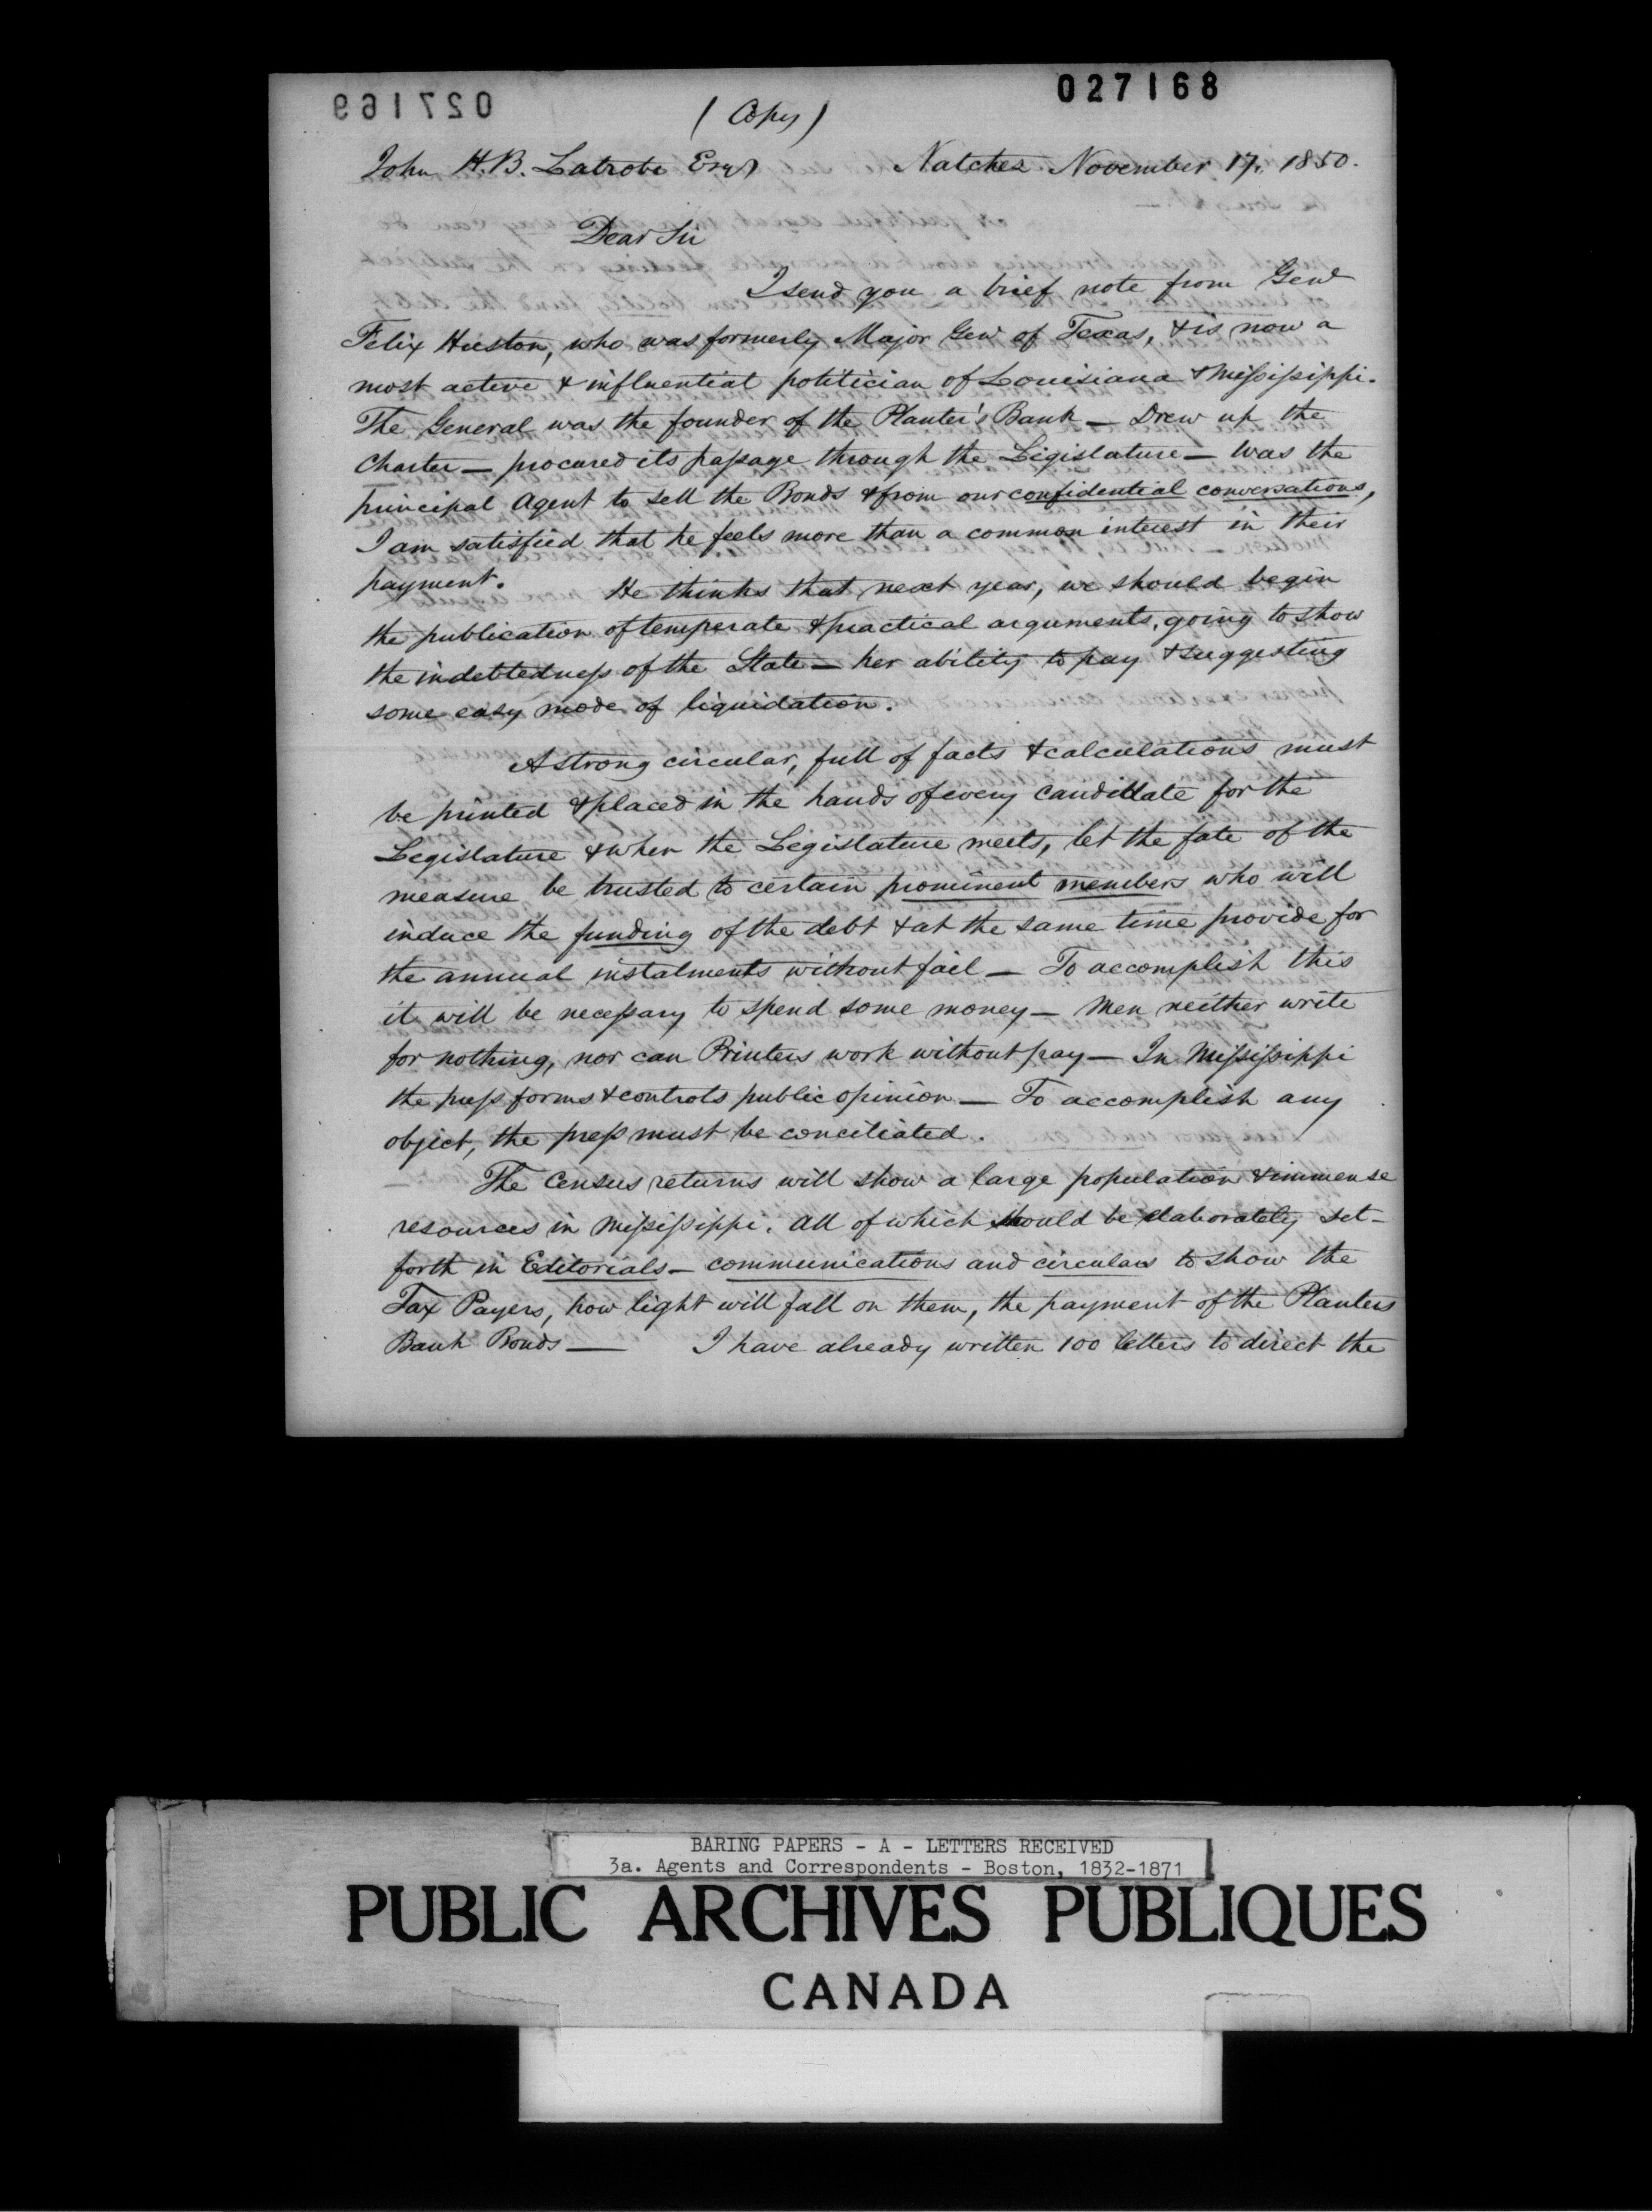 027168
027169
(Copy)
John H.B. Latrobe Esqr Natchez November 17, 1850.
Dear Sir
I send you a brief note from Genl
Felix Huston, who was formerly Major Genl of Texas, & is now a
most active & influential politician of Louisiana & Mississippi.
The General was the founder of the Planter's Bank — Drew up the
Charter — procured its passage through the Legislature — Was the
principal Agent to sell the Bonds & from our confidential conversations,
I am satisfied that he feels more than a common interest in their
payment. He thinks that next year, we should begin
the publication of temperate & practical arguments, going to show
the indebtedness of the State — her ability to pay & suggesting
some easy mode of liquidation.
A strong circular, full of facts & calculations must
be printed & placed in the hands of every candidate for the
Legislature & when the Legislature meets, let the fate of the
measure be trusted to certain prominent members who will
induce the funding of the debt & at the same time provide for
the annual instalments without fail — To accomplish this
it will be necessary to spend some money — Men neither write
for nothing, nor can Printers work without pay — In Mississippi
the press forms & controls public opinion — To accomplish any
object, the press must be conciliated.
The Census returns will show a large population & immense
resources in Mississippi. All of which should be elaborately set-
forth in Editorials — communications and circulars to show the
Tax Payers, how light will fall on them, the payment of the Planters
Bank Bonds — I have already written 100 letters to direct the
BARING PAPERS - A - LETTERS RECEIVED
3a. Agents and Correspondents - Boston, 1832-1871
PUBLIC ARCHIVES PUBLIQUES
CANADA